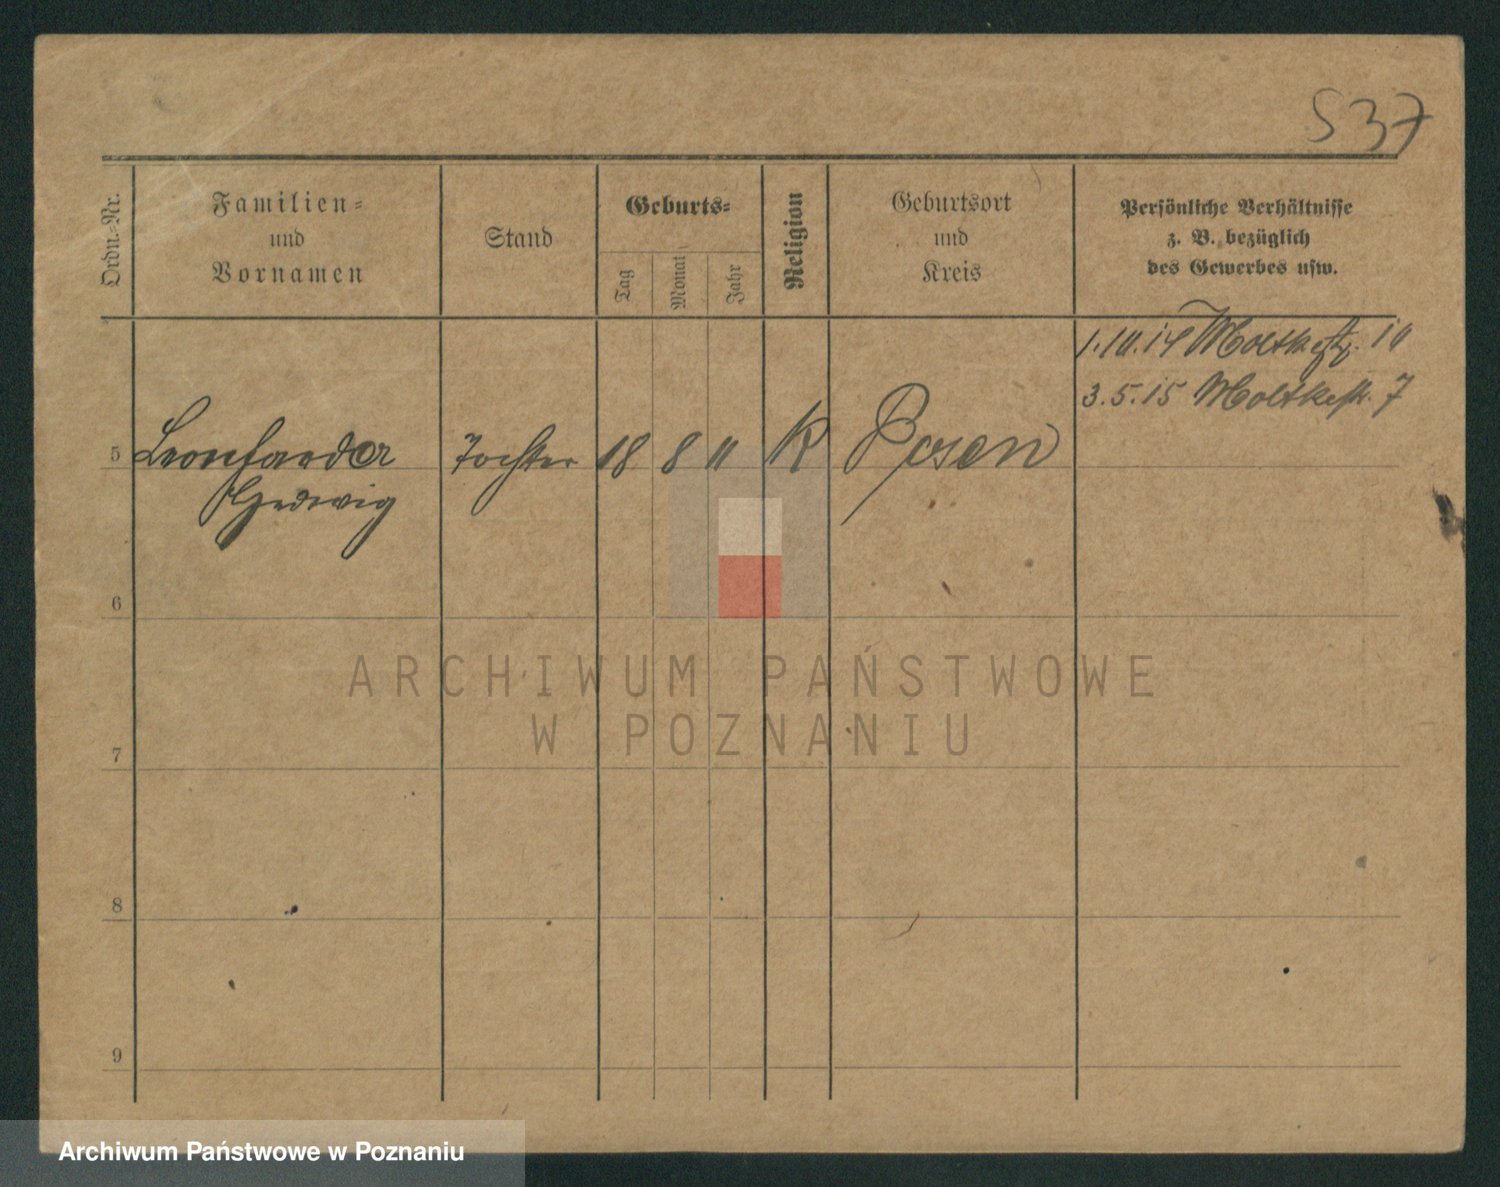 S37
Ordn.-Nr.
Familien-
und
Vornamen
Stand
Geburts-
Tag
Monat
Jahr
Religion
Geburtsort
und
Kreis
Persönliche Verhältnisse
z. B. bezüglich
des Gewerbes usw.
1.10.14 Moltkestr. 10
3.5.15 Moltkestr. 7
5 Tochter 18 8 11 K Posen
Hedwig
6
7
8
9
ARCHIWUM PAŃSTWOWE
W POZNANIU
Archiwum Państwowe w Poznaniu